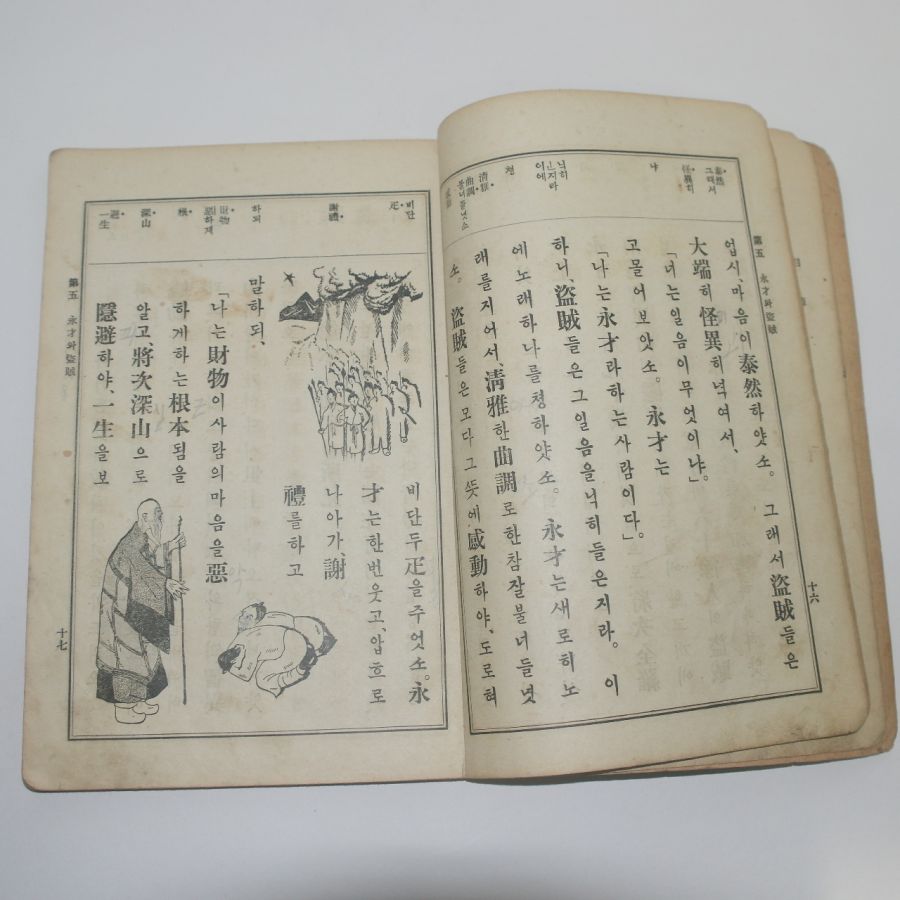 泰然
그래서
怪異히
나
닉히
ᄂᆞᆫ지라
이에
청
淸雅
曲調
불너들넷소
第五 永才와盜賊
업시、마음이泰然하얏소。 그래서盜賊들은
大端히怪異히녁여서、
「너는일음이무엇이냐」
고물어보앗소。 永才는
「나는永才라하는사람이다。」
하니、盜賊들은그일음을닉히들은지라。 이
에노래하나를청하얏소。 永才는새로히노
래를지어서淸雅한曲調로한참잘불너들넛
소。 盜賊들은모다그ᄯᅳᆺ에感動하야、도로혀
十六
비단
疋
謝禮
하되
財物
惡하게
根
深山
避
一生
第五 永才와盜賊
비단두疋을주엇소。永
才는한번웃고、압흐로
나아가、謝
禮를하고
말하되、
「나는財物이사람의마음을惡
하게하는根本됨을
알고、將次深山으로
隱避하야、一生을보
十七